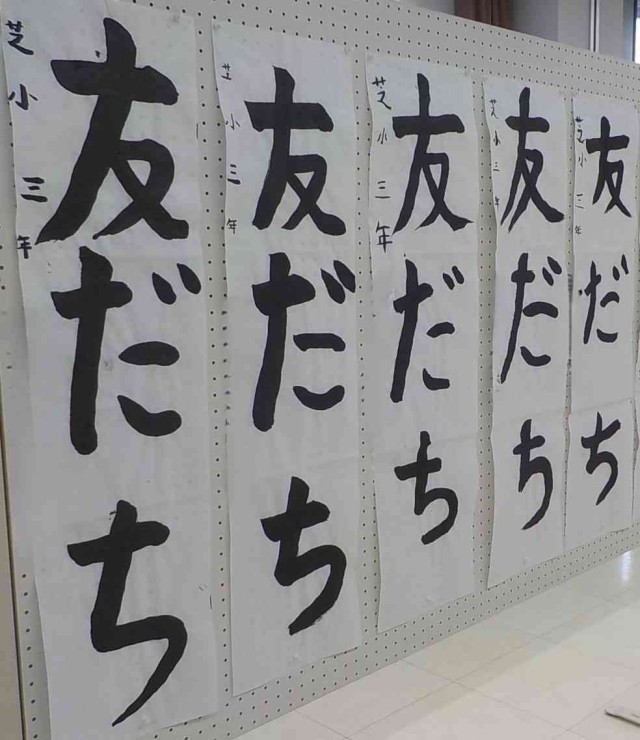 友だち
芝小 三年
友だち
芝小 三年
友だち
芝小 三年
友だち
芝小 三年
友だち
芝小 三年